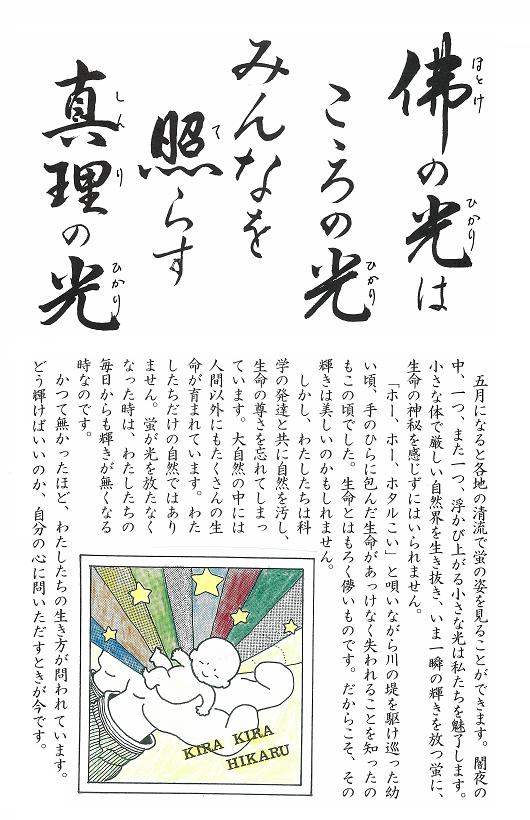 佛の光は
ほとけ
ひかり
こころの光
ひかり
みんなを
照らす
て
真理の光
しんり
ひかり
五月になると各地の清流で蛍の姿を見ることができます。闇夜の
中、一つ、また一つ、浮かび上がる小さな光は私たちを魅了します。
小さな体で厳しい自然界を生き抜き、いま一瞬の輝きを放つ蛍に、
生命の神秘を感じずにはいられません。
「ホー、ホー、ホタルこい」と唄いながら川の堤を駆け巡った幼
い頃、手のひらに包んだ生命があっけなく失われることを知ったの
もこの頃でした。生命とはもろく儚いものです。だからこそ、その
輝きは美しいのかもしれません。
しかし、わたしたちは科
学の発達と共に自然を汚し、
生命の尊さを忘れてしまっ
ています。大自然の中には
人間以外にもたくさんの生
命が育まれています。わた
したちだけの自然ではあり
ません。蛍が光を放たなく
なった時は、わたしたちの
毎日からも輝きが無くなる
時なのです。
かつて無かったほど、わたしたちの生き方が問われています。
どう輝けばいいのか、自分の心に問いただすときが今です。
KIRA KIRA
HIKARU